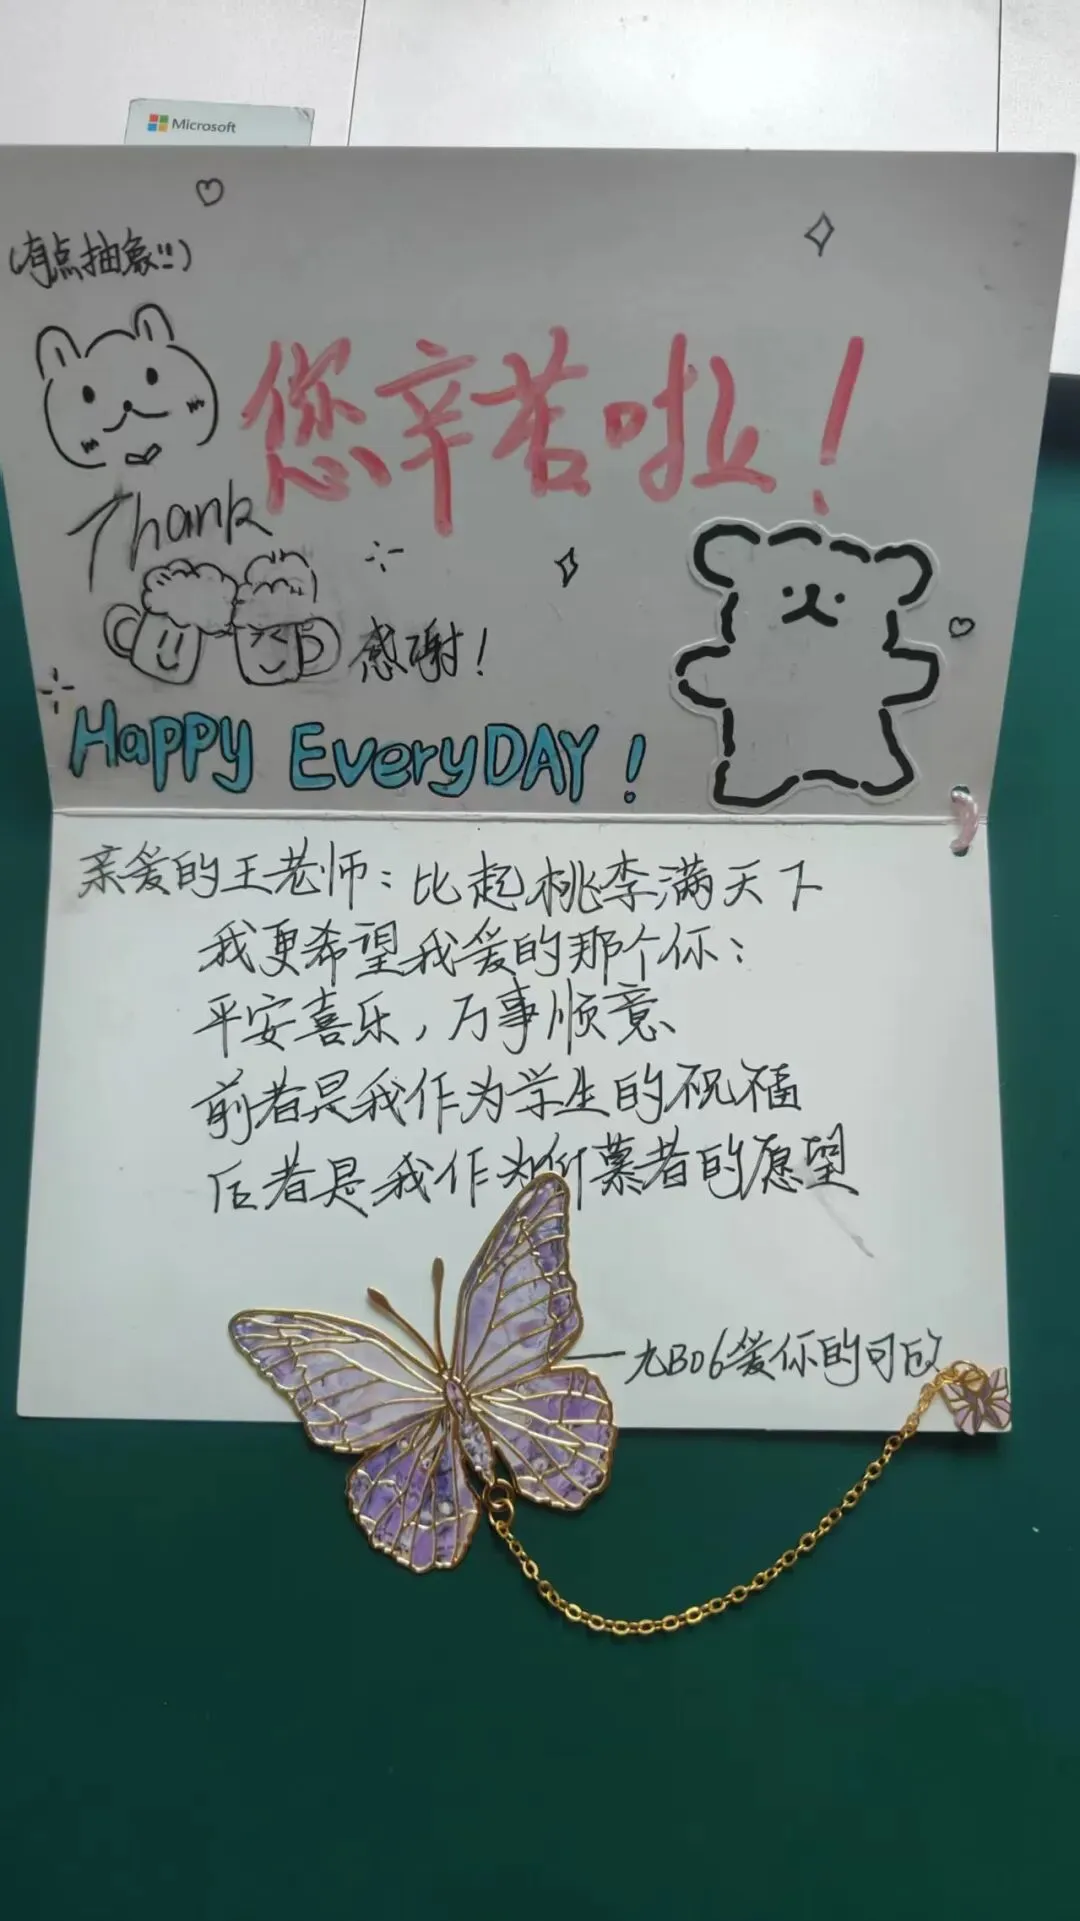 Microsoft
(有点抽象!!)
您辛苦啦！
Thank
感谢！
Happy EveryDAY！
亲爱的王老师：比起桃李满天下
我更希望我爱的那个你：
平安喜乐，万事顺意
前者是我作为学生的祝福
后者是我作为仰慕者的愿望
——九B06爱你的